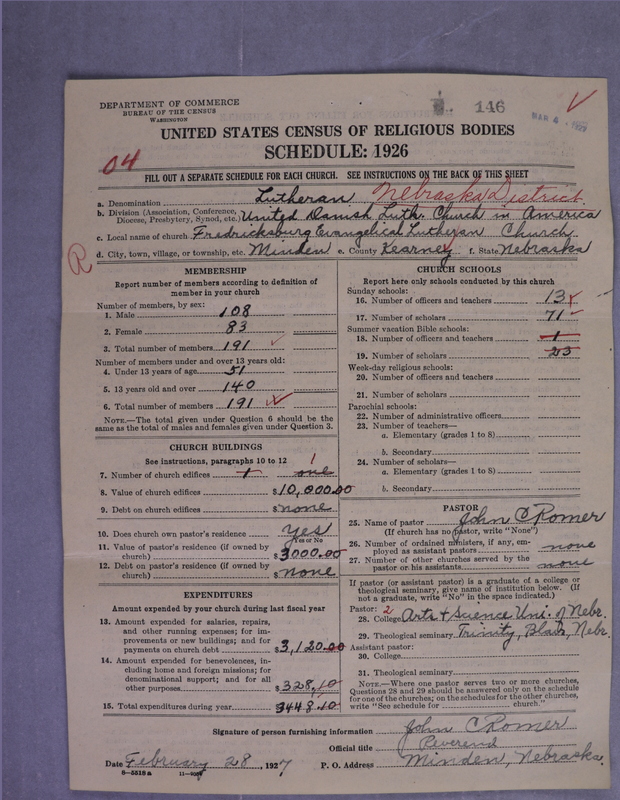 DEPARTMENT OF COMMERCE
BUREAU OF THE CENSUS
WASHINGTON
146
MAR 4 1927
UNITED STATES CENSUS OF RELIGIOUS BODIES
SCHEDULE: 1926
04
FILL OUT A SEPARATE SCHEDULE FOR EACH CHURCH. SEE INSTRUCTIONS ON THE BACK OF THIS SHEET
a. Denomination Lutheran Nebraska District
b. Division (Association, Conference, Diocese, Presbytery, Synod, etc.) United Danish Luth. Church in America
c. Local name of church Fredricksburg Evangelical Lutheran Church
d. City, town, village, or township, etc. Minden e. County Kearney f. State Nebraska
R
MEMBERSHIP
Report number of members according to definition of
member in your church
Number of members, by sex:
1. Male 108
2. Female 83
3. Total number of members 191
Number of members under and over 13 years old:
4. Under 13 years of age 51
5. 13 years old and over 140
6. Total number of members 191
NOTE.—The total given under Question 6 should be
same as the total of males and females given under Question 3.
CHURCH BUILDINGS
See instructions, paragraphs 10 to 12
7. Number of church edifices 1 one 1
8. Value of church edifices $10,000.00
9. Debt on church edifices $none
10. Does church own pastor's residence yes
Yes or No
11. Value of pastor's residence (if owned by
church) $3000.00
12. Debt on pastor's residence (if owned by
church) $none
EXPENDITURES
Amount expended by your church during last fiscal year
13. Amount expended for salaries, repairs,
and other running expenses; for im-
provements or new buildings; and for
payments on church debt $3,120.00
14. Amount expended for benevolences, in-
cluding home and foreign missions; for
denominational support; and for all
other purposes $328.10
15. Total expenditures during year $3448.10
CHURCH SCHOOLS
Report here only schools conducted by this church
Sunday schools:
16. Number of officers and teachers 13
17. Number of scholars 71
Summer vacation Bible schools:
18. Number of officers and teachers 1
19. Number of scholars 23
Week-day religious schools:
20. Number of officers and teachers
21. Number of scholars
Parochial schools:
22. Number of administrative officers
23. Number of teachers—
a. Elementary (grades 1 to 8)
b. Secondary
24. Number of scholars—
a. Elementary (grades 1 to 8)
b. Secondary
PASTOR
25. Name of pastor John C Romer
(If church has no pastor, write "None")
26. Number of ordained ministers, if any, em-
ployed as assistant pastors none
27. Number of other churches served by the
pastor or his assistants none
If pastor (or assistant pastor) is a graduate of a college or
theological seminary, give name of institution below. (If
not a graduate, write "No" in the space indicated.)
Pastor: 2
28. College Arts & Science Uni. of Nebr.
29. Theological seminary Trinity, Blair, Nebr.
Assistant pastor:
30. College
31. Theological seminary
NOTE.—Where one pastor serves two or more churches,
Questions 28 and 29 should be answered only on the schedule
for one of the churches; on the schedules for the other churches,
write "See schedule for church."
Signature of person furnishing information John C Romer
Official title Reverend
Date February 28, 1927 P. O. Address Minden, Nebraska.
8—5518a